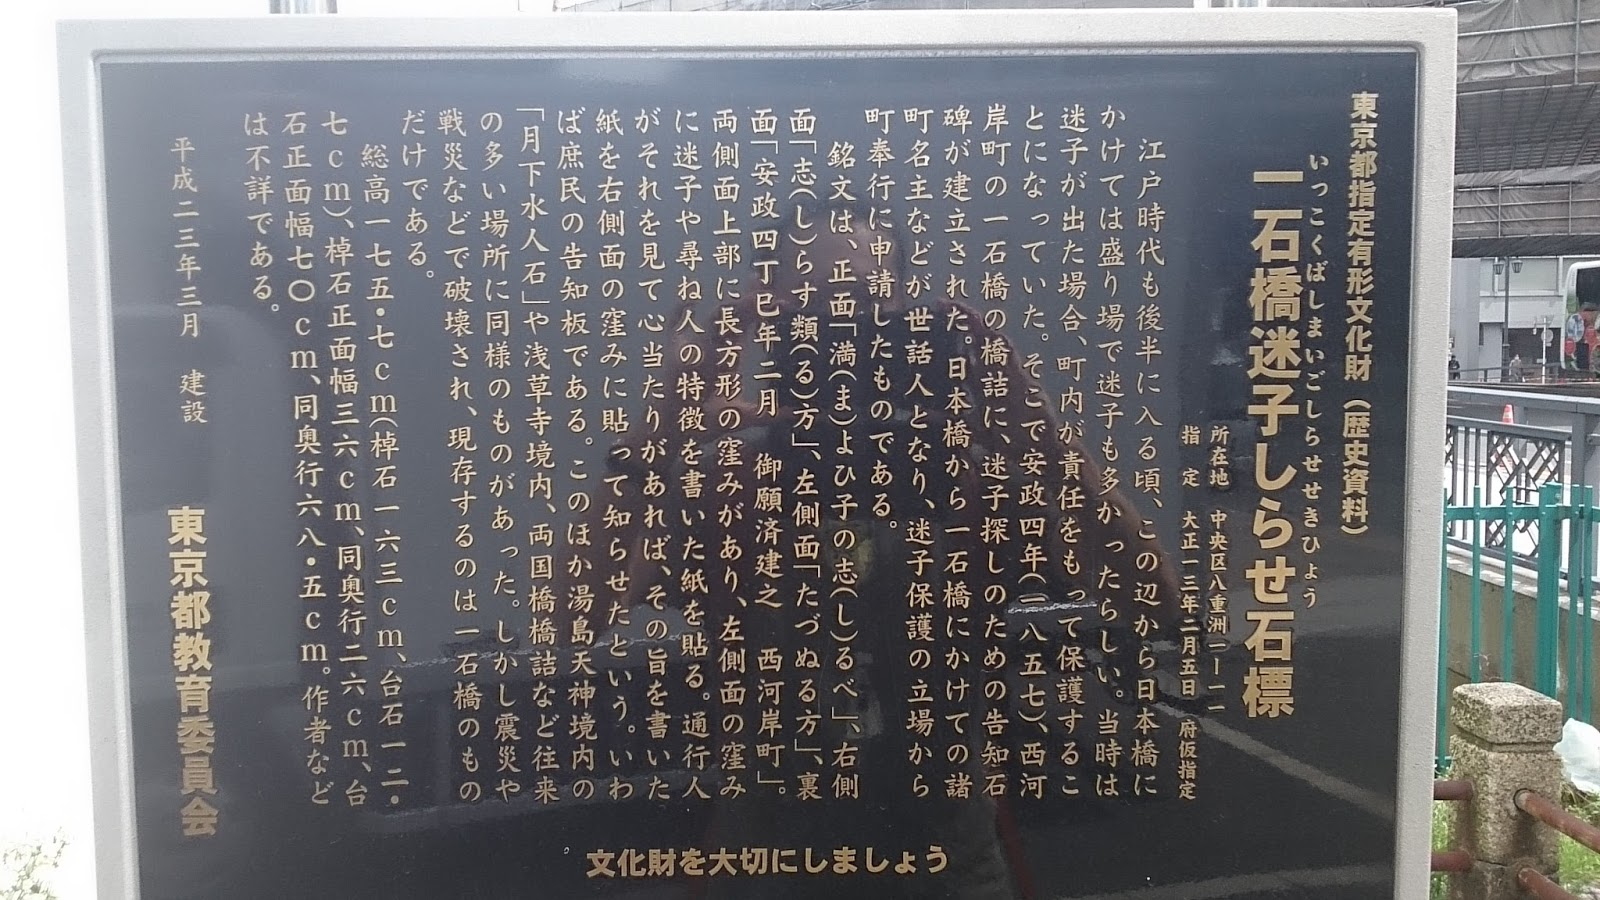 東京都指定有形文化財（歴史資料）
いっこくばしまいごしらせせきひょう
一石橋迷子しらせ石標
所在地　中央区八重洲一ー一一
指　定　大正一三年二月五日　府仮指定
江戸時代も後半に入る頃、この辺から日本橋に
かけては盛り場で迷子も多かったらしい。当時は
迷子が出た場合、町内が責任をもって保護するこ
とになっていた。そこで安政四年（一八五七）、西河
岸町の一石橋の橋詰に、迷子探しのための告知石
碑が建立された。日本橋から一石橋にかけての諸
町名主などが世話人となり、迷子保護の立場から
町奉行に申請したものである。
銘文は、正面「満（ま）よひ子の志（し）るべ」、右側
面「志（し）らす類（る）方」、左側面「たづぬる方」、裏
面「安政四丁巳年二月　御願済建之　西河岸町」。
両側面上部に長方形の窪みがあり、左側面の窪み
に迷子や尋ね人の特徴を書いた紙を貼る。通行人
がそれを見て心当たりがあれば、その旨を書いた
紙を右側面の窪みに貼って知らせたという。いわ
ば庶民の告知板である。このほか湯島天神境内の
「月下水人石」や浅草寺境内、両国橋橋詰など往来
の多い場所に同様のものがあった。しかし震災や
戦災などで破壊され、現存するのは一石橋のもの
だけである。
総高一七五・七cm（棹石一六三cm、台石一二・
七cm）、棹石正面幅三六cm、同奥行二六cm、台
石正面幅七〇cm、同奥行六八・五cm。作者など
は不詳である。
平成二三年三月　建設
東京都教育委員会
文化財を大切にしましょう